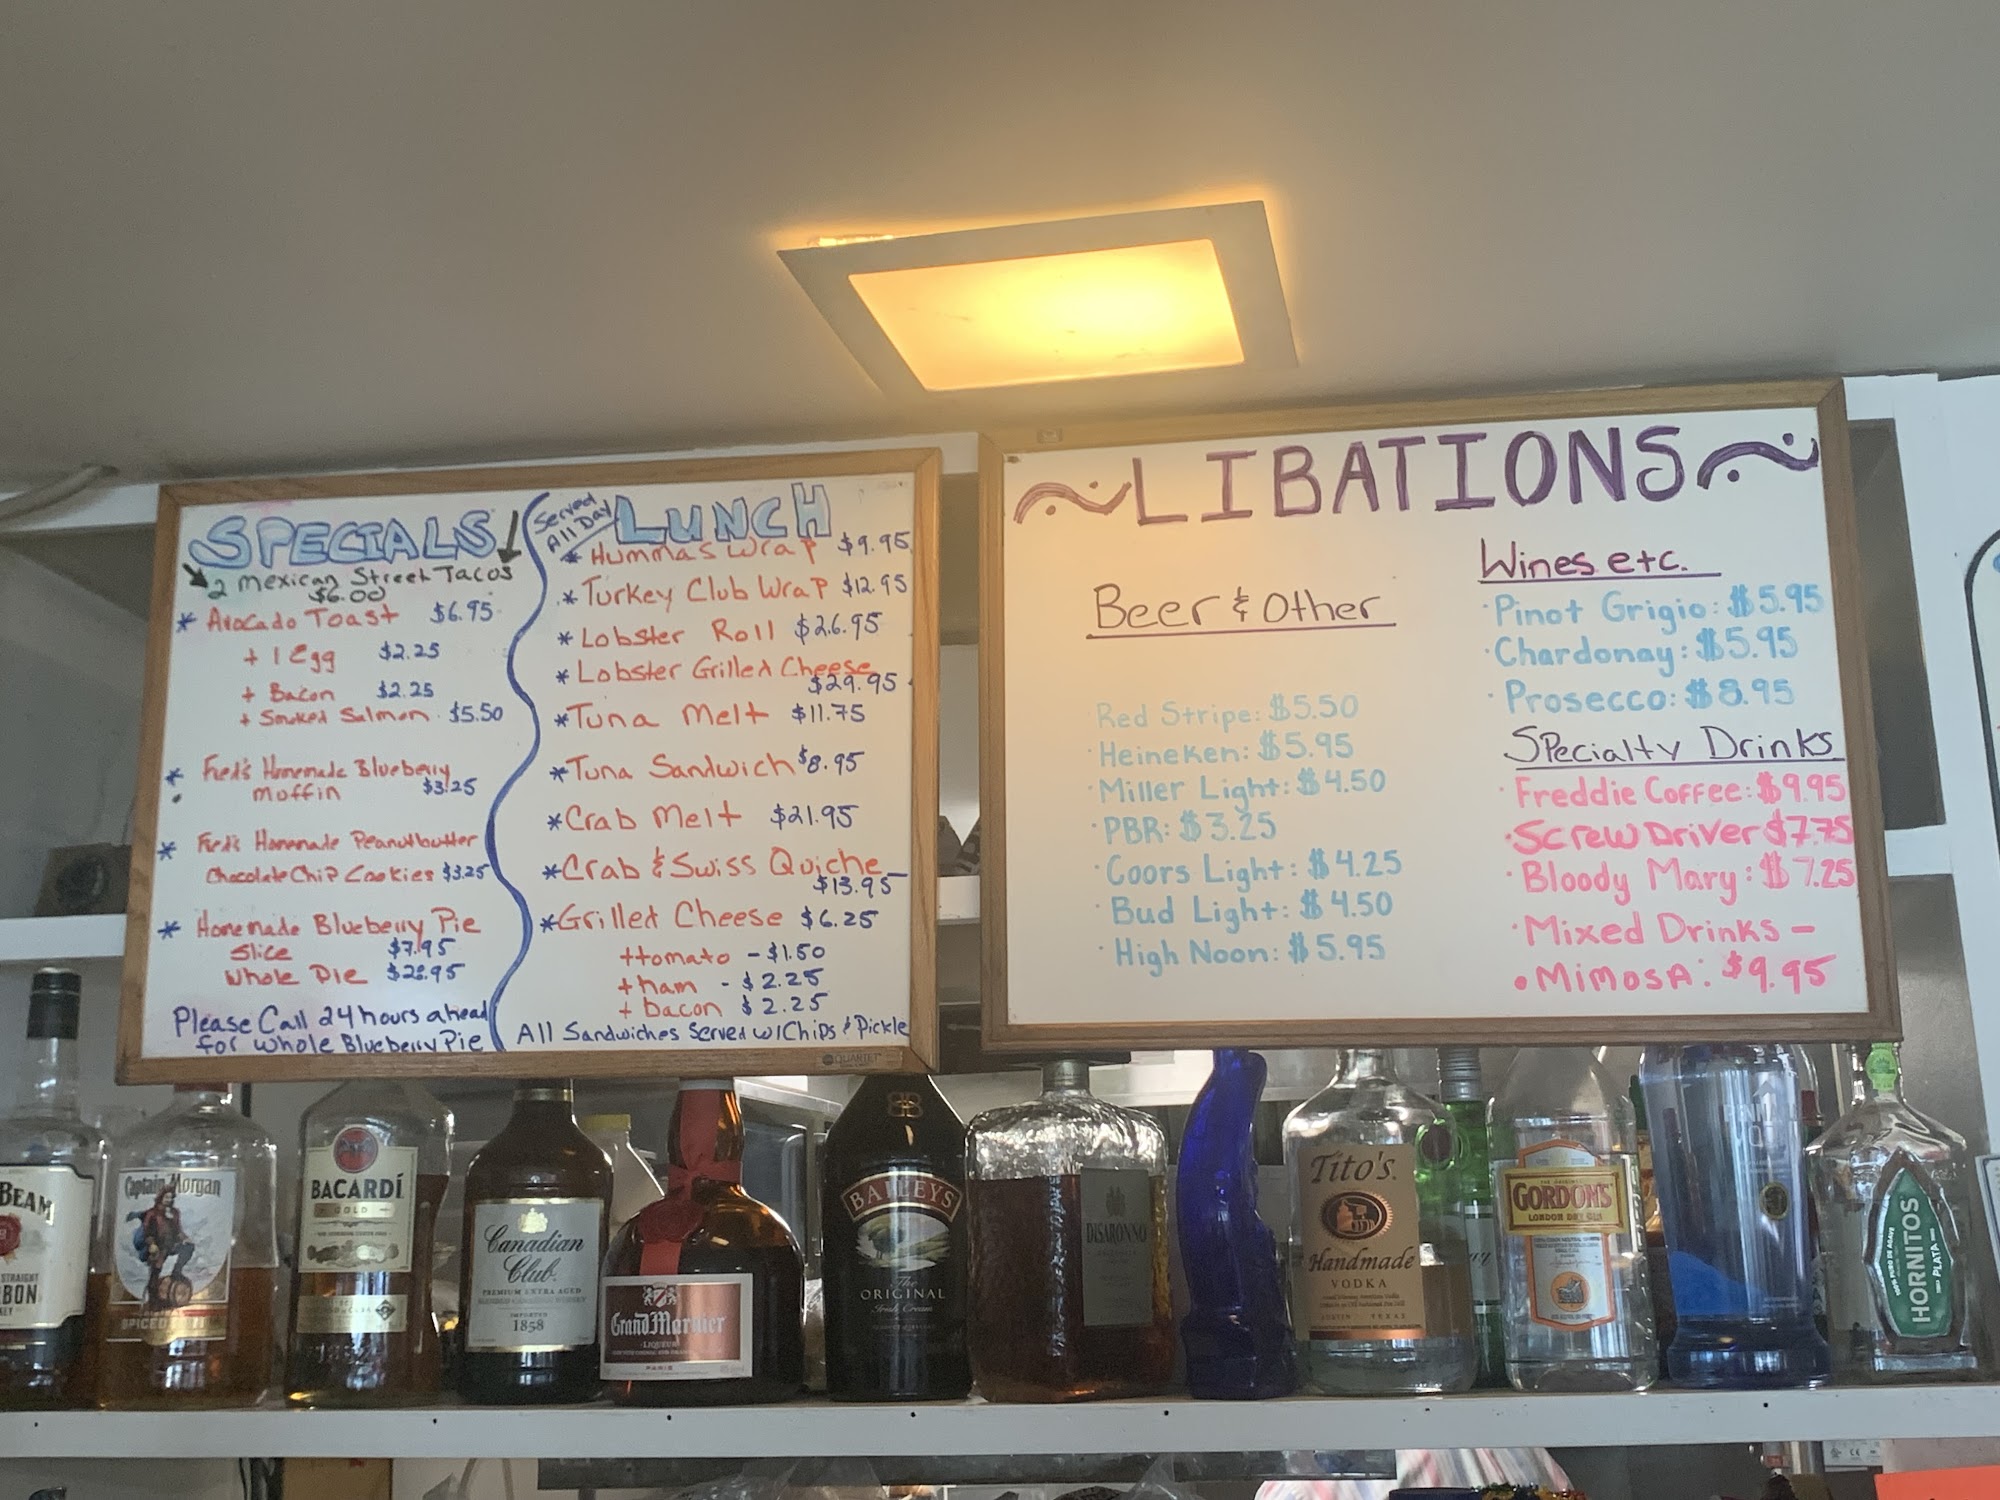 SPECIALS
2 Mexican Street Tacos
$6.00
* Avocado Toast $6.95
+ 1 Egg $2.25
+ Bacon $2.25
+ Smoked Salmon $5.50
* Fred's Homemade Blueberry
muffin $3.25
* Fred's Homemade Peanutbutter
Chocolate Chip Cookies $3.25
* Homemade Blueberry Pie
Slice $7.95
Whole Pie $28.95
Please Call 24 hours ahead
for whole Blueberry Pie
Served
All Day
LUNCH
* Hummas Wrap $9.95
* Turkey Club Wrap $12.95
* Lobster Roll $26.95
* Lobster Grilled Cheese
$29.95
* Tuna Melt $11.75
* Tuna Sandwich $8.95
* Crab Melt $21.95
* Crab & Swiss Quiche
$13.95
* Grilled Cheese $6.25
+tomato - $1.50
+ham - $2.25
+ bacon $2.25
All Sandwiches Served w/Chips & Pickle
QUARTET
~LIBATIONS~
Beer & Other
· Red Stripe: $5.50
· Heineken: $5.95
· Miller Light: $4.50
· PBR: $3.25
· Coors Light: $4.25
· Bud Light: $4.50
· High Noon: $5.95
Wines etc.
· Pinot Grigio: $5.95
· Chardonay: $5.95
· Prosecco: $8.95
Specialty Drinks
· Freddie Coffee: $9.95
· Screw Driver $7.75
· Bloody Mary: $7.25
· Mixed Drinks -
• Mimosa: $9.95
BEAM
STRAIGHT
Captain Morgan
SPICED
BACARDÍ
GOLD
Canadian
Club
PREMIUM EXTRA AGED
IMPORTED
1858
Grand Marnier
LIQUEUR
PARIS
BAILEYS
The
ORIGINAL
Irish Cream
DISARONNO
Tito's
Handmade
VODKA
AUSTIN TEXAS
GORDON'S
LONDON DRY GIN
HORNITOS
PLATA